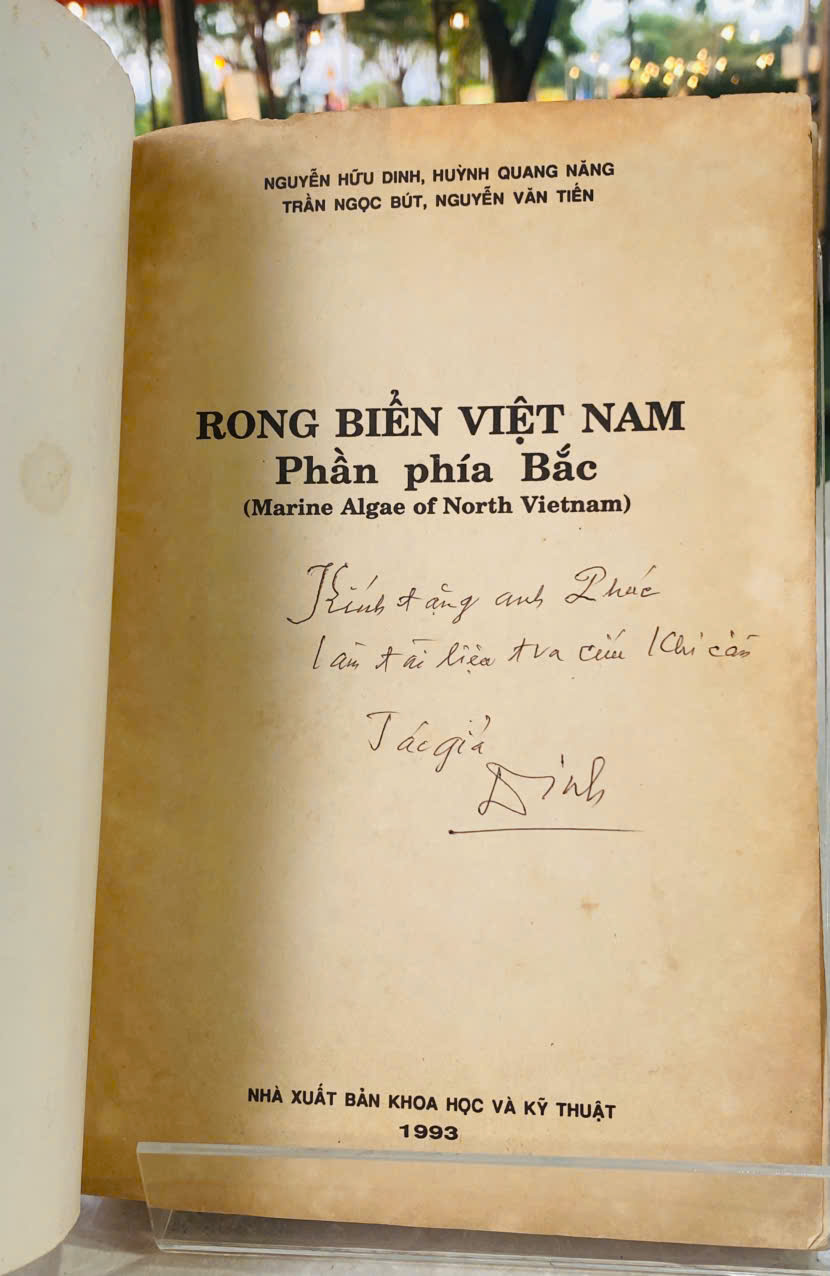 NGUYỄN HỮU DINH, HUỲNH QUANG NĂNG
TRẦN NGỌC BÚT, NGUYỄN VĂN TIẾN
RONG BIỂN VIỆT NAM
Phần phía Bắc
(Marine Algae of North Vietnam)
Kính tặng anh Phúc
làm tài liệu tra cứu khi cần
Tác giả
Dinh
NHÀ XUẤT BẢN KHOA HỌC VÀ KỸ THUẬT
1993